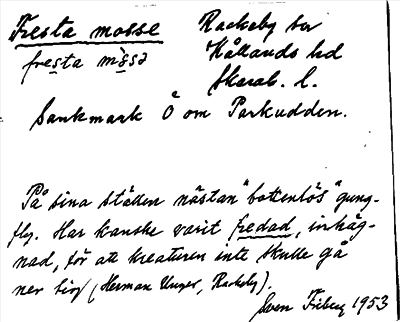 Fresta mosse Rackeby sn
fresta mòssə Kållands hd
Skarab. l.
Sankmark Ö om Parkudden.
På sina ställen nästan "bottenlös" gung-
fly. Har kanske varit fredad, inhäg-
nad, för att kreaturen inte skulle gå
ner sig (Herman Unger, Rackeby).
Sven Friberg 1953